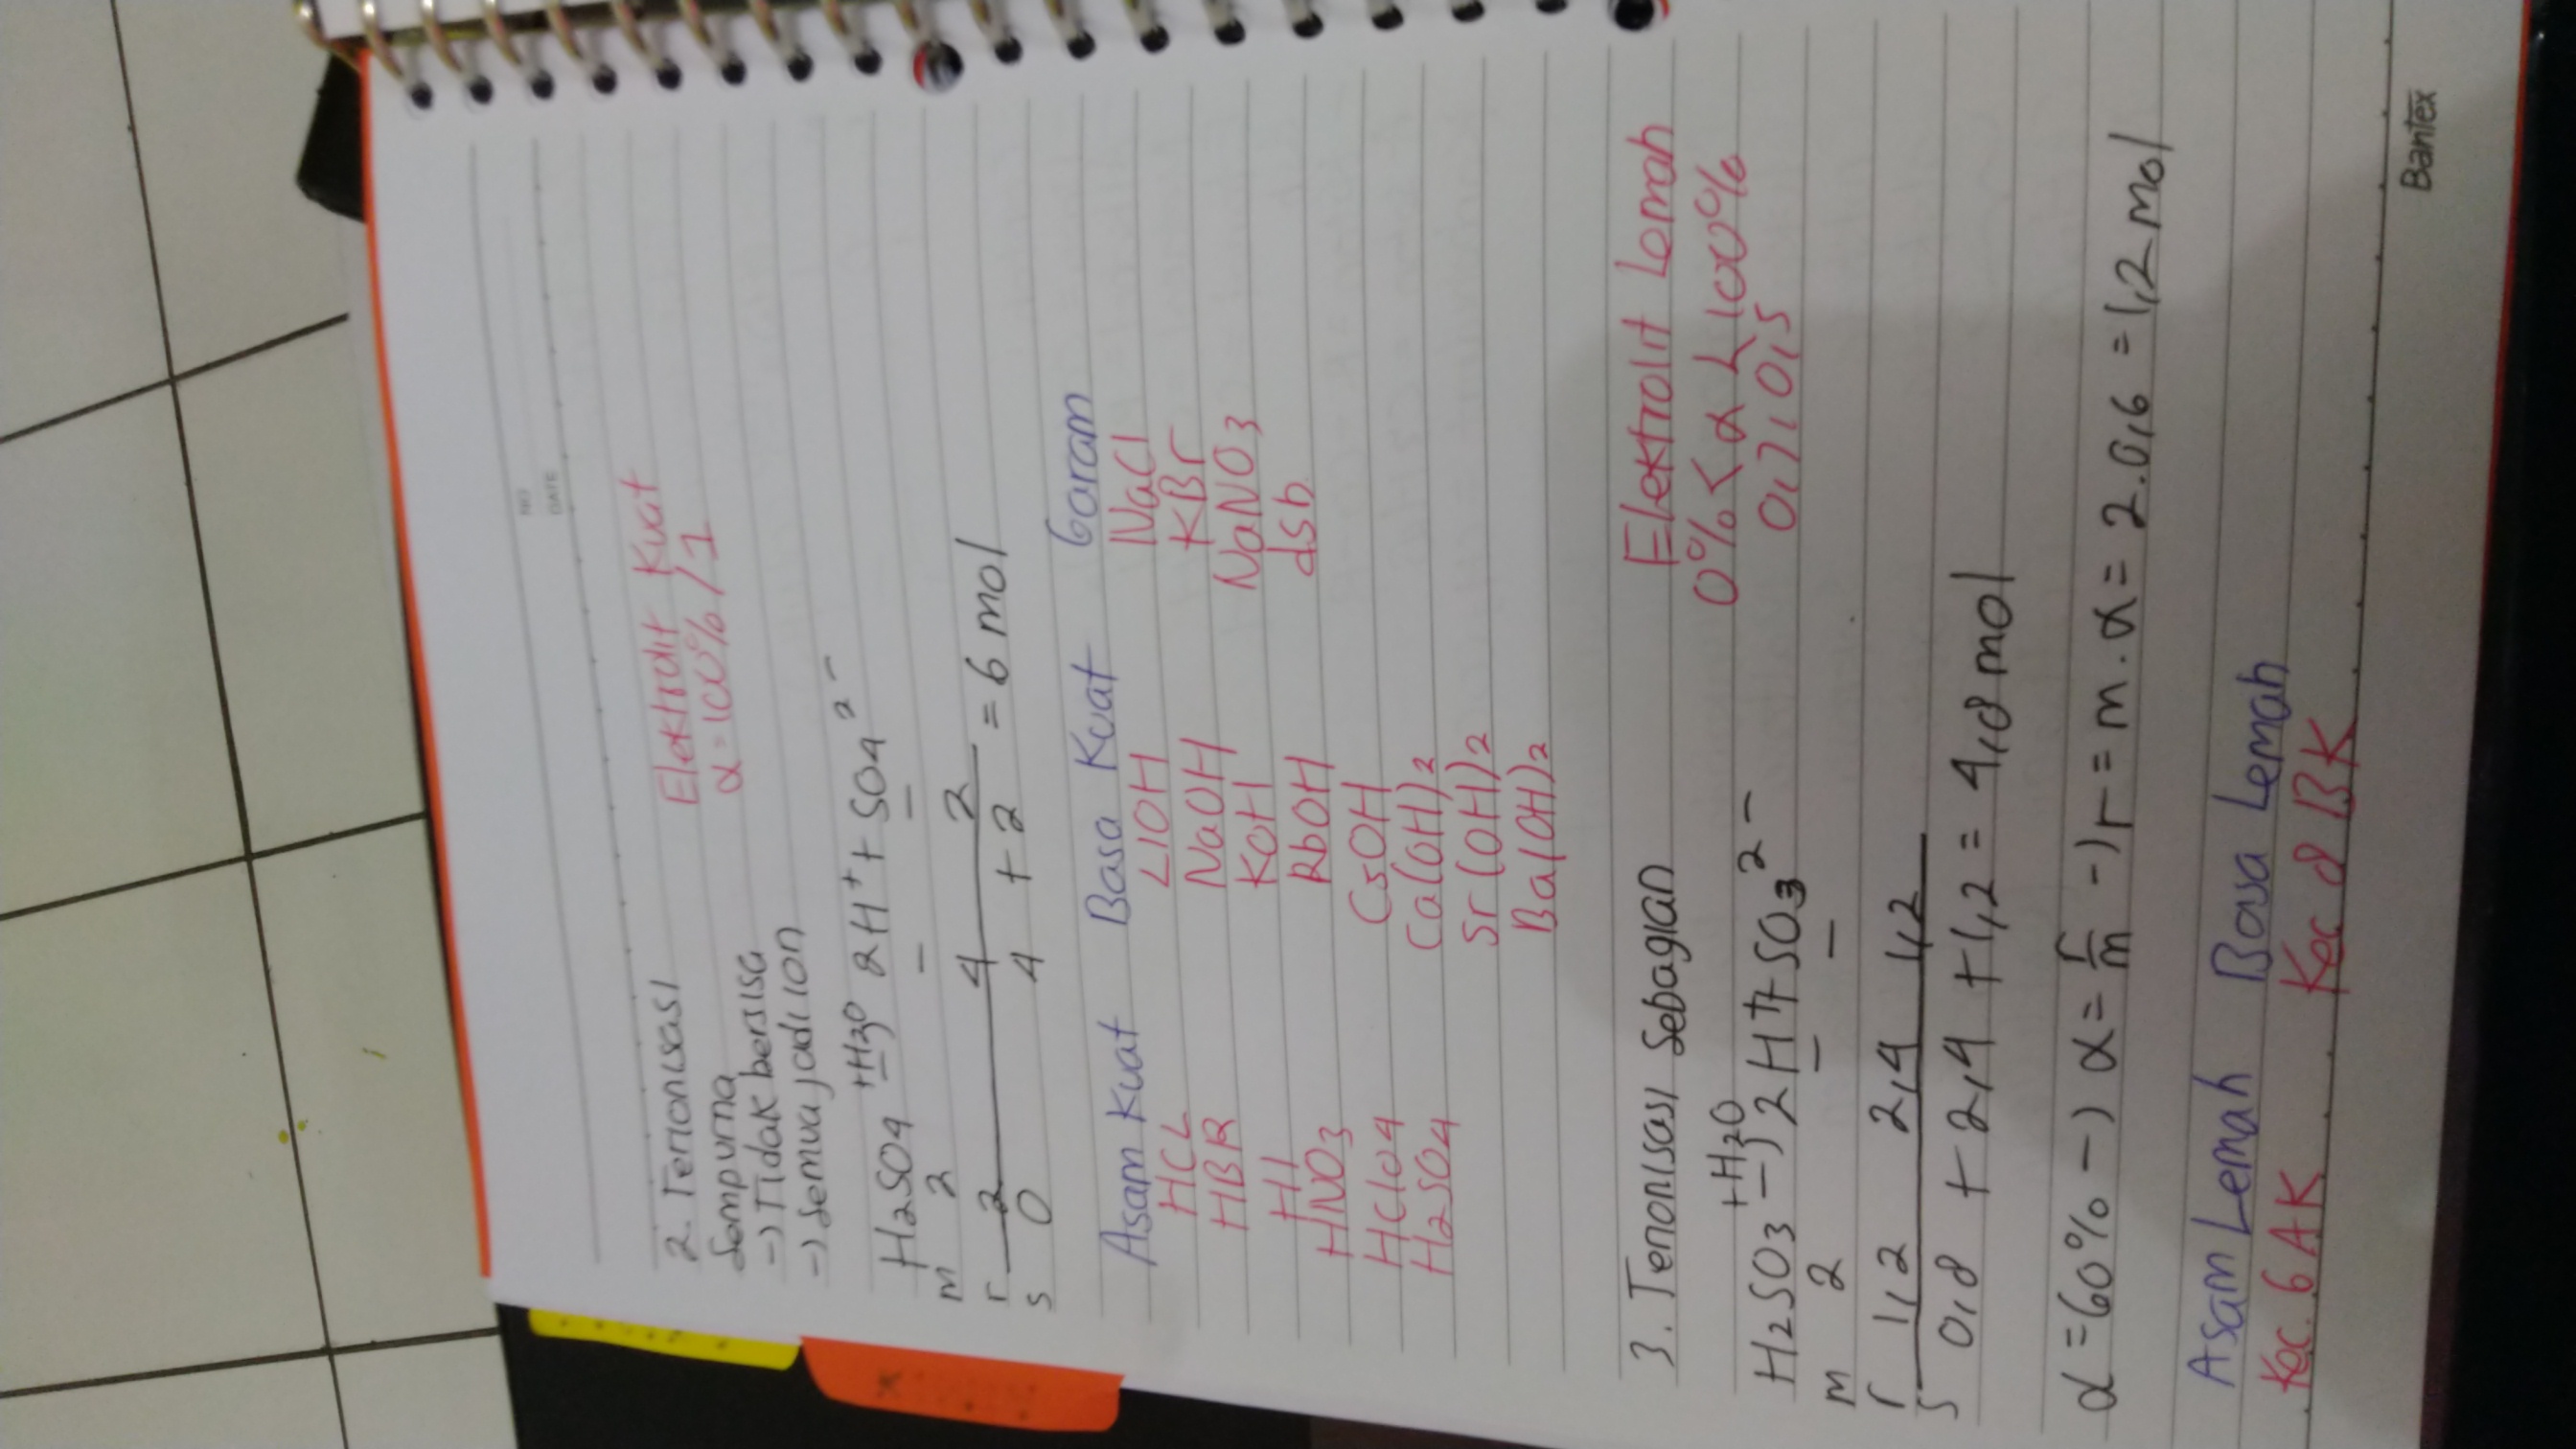 NO
DATE
2. Terionisasi
Sempurna
-) Tidak bersisa
-) Semua jadi ion
Elektrolit Kuat
α = 100% / 1
H2SO4 +H2O -) 2H+ + SO4 2-
m 2 - -
r 2 4 2
s 0 4 + 2 = 6 mol
Asam Kuat Basa Kuat Garam
HCL LiOH NaCl
HBR NaOH KBr
HI KOH NaNO3
HNO3 RbOH dsb
HClO4 CsOH
H2SO4 Ca(OH)2
Sr(OH)2
Ba(OH)2
3. Terionisasi Sebagian Elektrolit Lemah
0% < α < 100%
H2SO3 +H2O -) 2H+ + SO3 2-
m 2 - -
r 1,2 2,4 1,2
s 0,8 + 2,4 + 1,2 = 4,8 mol
α = 60% -) α = r/m -) r = m . α = 2.0,6 = 1,2 mol
Asam Lemah Basa Lemah
Kec. 6 AK Kec 8 BK
Bantex